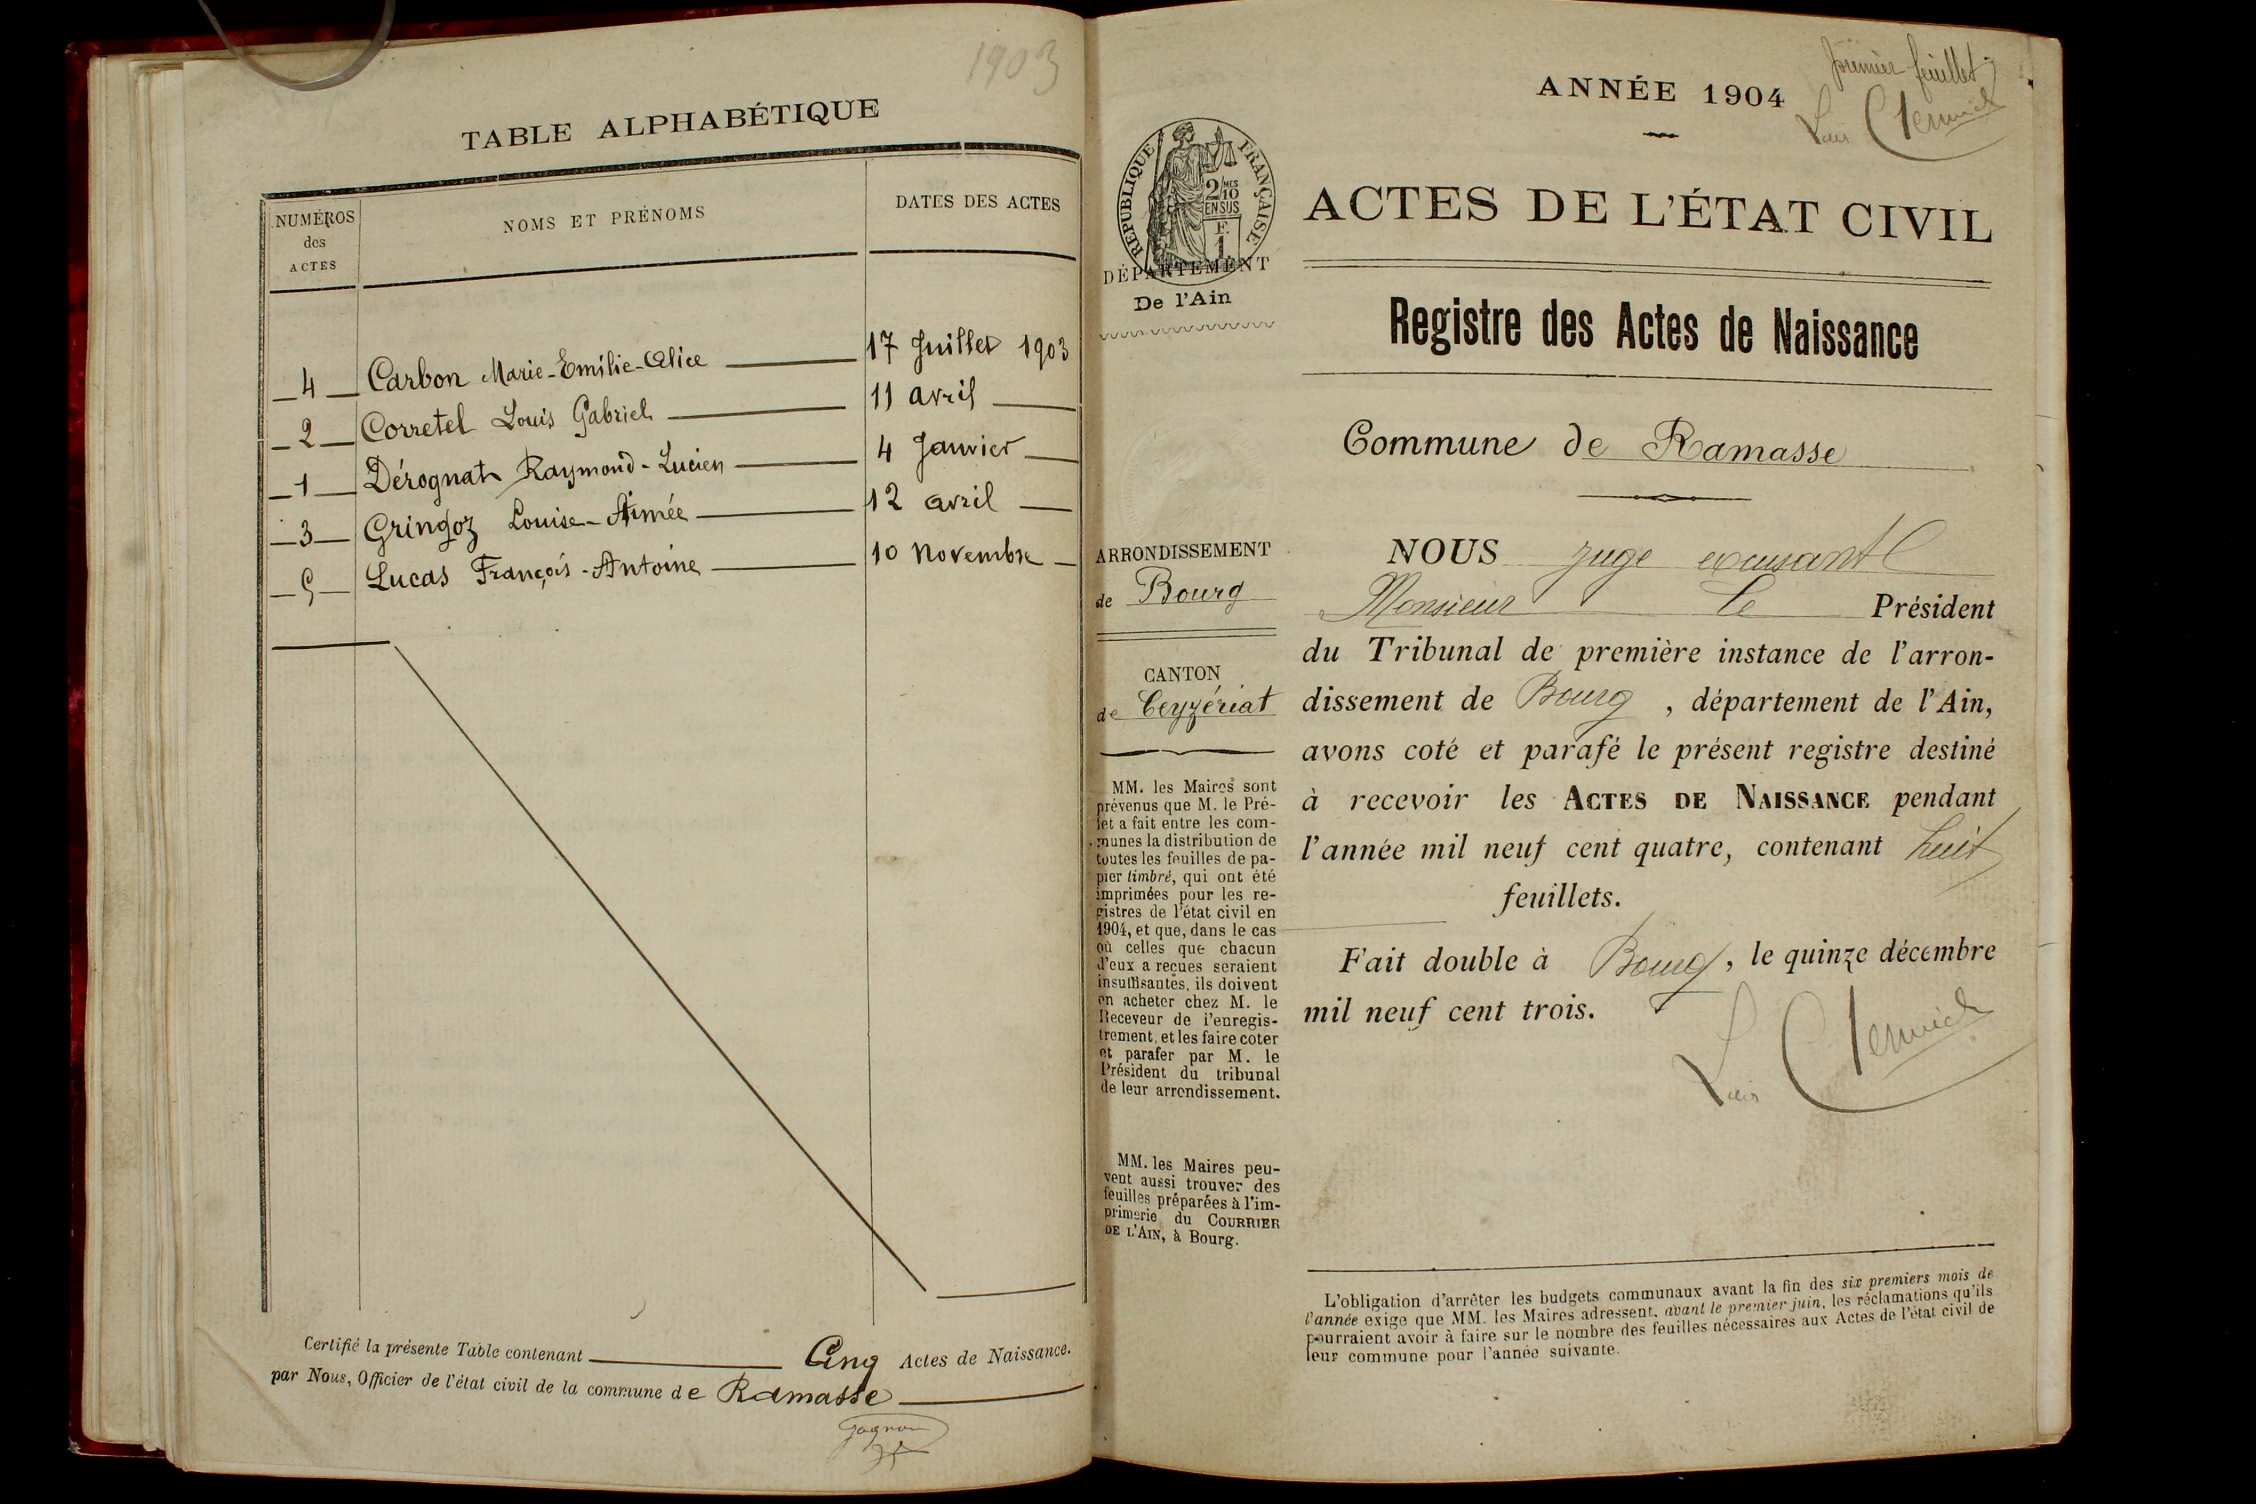 1903
TABLE ALPHABÉTIQUE
NUMÉROS
des
ACTES
NOMS ET PRÉNOMS
DATES DES ACTES
4 Carbon Marie-Emilie-Alice 17 Juillet 1903
2 Corretel Louis Gabriel 11 avril
1 Dérognat Raymond-Lucien 4 Janvier
3 Gringoz Louise-Aimée 12 avril
5 Lucas François-Antoine 10 Novembre
Certifié la présente Table contenant Cinq Actes de Naissance.
par Nous, Officier de l'état civil de la commune de Ramasse
Gagnon
premier feuillet
ANNÉE 1904
RÉPUBLIQUE FRANÇAISE
2/10 MES
EN SUS
F.
1
DÉPARTEMENT
De l'Ain
ARRONDISSEMENT
de Bourg
CANTON
de Ceyzériat
MM. les Maires sont
prévenus que M. le Pré-
fet a fait entre les com-
munes la distribution de
toutes les feuilles de pa-
pier timbré, qui ont été
imprimées pour les re-
gistres de l'état civil en
1904, et que, dans le cas
où celles que chacun
d'eux a reçues seraient
insuffisantes, ils doivent
en acheter chez M. le
Receveur de l'enregis-
trement, et les faire coter
et parafer par M. le
Président du tribunal
de leur arrondissement.
MM. les Maires peu-
vent aussi trouver des
feuilles préparées à l'im-
primerie du COURRIER
DE L'AIN, à Bourg.
ACTES DE L'ÉTAT CIVIL
Registre des Actes de Naissance
Commune de Ramasse
NOUS juge
Monsieur Le Président
du Tribunal de première instance de l'arron-
dissement de Bourg, département de l'Ain,
avons coté et parafé le présent registre destiné
à recevoir les ACTES DE NAISSANCE pendant
l'année mil neuf cent quatre, contenant huit
feuillets.
Fait double à Bourg, le quinze décembre
mil neuf cent trois.
L'obligation d'arrêter les budgets communaux avant la fin des six premiers mois de
l'année exige que MM. les Maires adressent, avant le premier juin, les réclamations qu'ils
pourraient avoir à faire sur le nombre des feuilles nécessaires aux Actes de l'état civil de
leur commune pour l'année suivante.